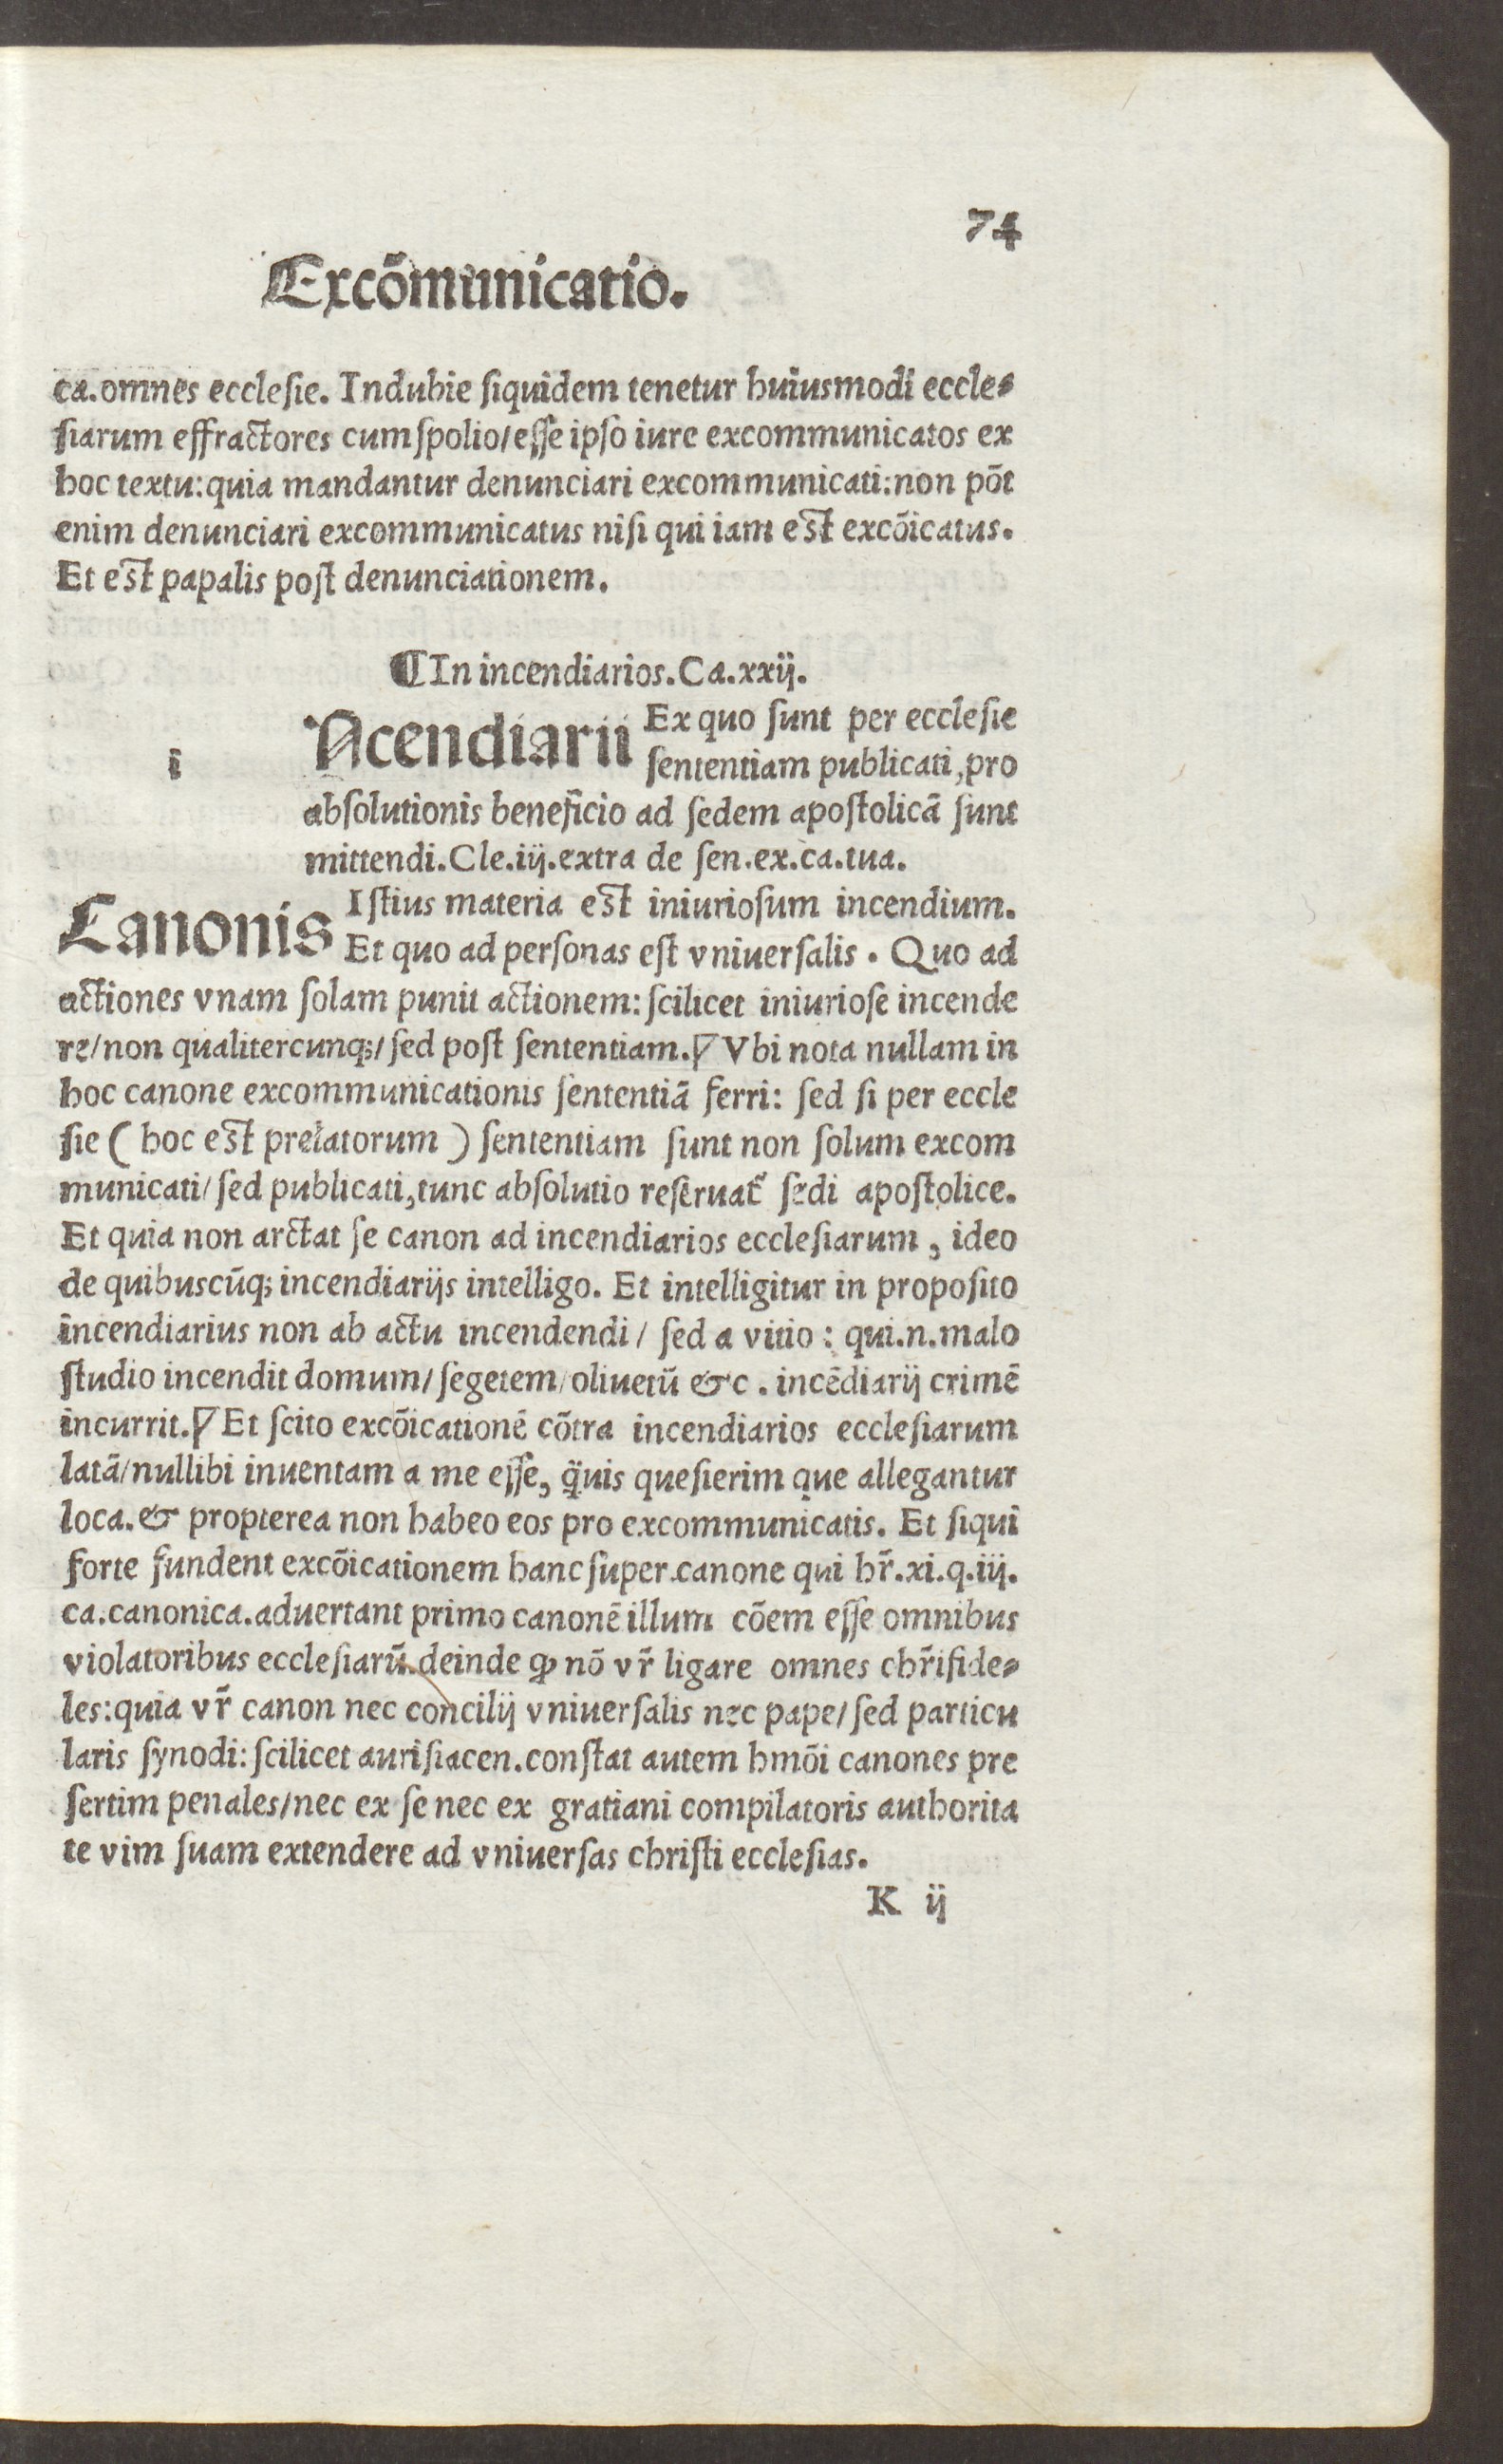 74
Excõmunicatio.
ca.omnes ecclesie. Indubie siquidem tenetur huiusmodi eccle⸗
siarum effractores cum spolio/esse ipso iure excommunicatos ex
hoc textu:quia mandantur denunciari excommunicati:non põt
enim denunciari excommunicatus nisi qui iam est excõicatus.
Et est papalis post denunciationem.
¶In incendiarios.Ca.xxij.
i Ncendiarii Ex quo sunt per ecclesie
sententiam publicati,pro
absolutionis beneficio ad sedem apostolicã sunt
mittendi.Cle.iij.extra de sen.ex.ca.tua.
Canonis Istius materia est iniuriosum incendium.
Et quo ad personas est vniuersalis . Quo ad
actiones vnam solam punit actionem:scilicet iniuriose incende
re/non qualitercunq;/sed post sententiam.▽ Vbi nota nullam in
hoc canone excommunicationis sententiã ferri: sed si per eccle
sie ( hoc est prelatorum ) sententiam sunt non solum excom
municati/ sed publicati,tunc absolutio reseruat᷑ sedi apostolice.
Et quia non arctat se canon ad incendiarios ecclesiarum , ideo
de quibuscũq; incendiarijs intelligo. Et intelligitur in proposito
incendiarius non ab actu incendendi / sed a vitio : qui.n.malo
studio incendit domum/segetem/oliuetũ &c . incẽdiarij crimẽ
incurrit.▽ Et scito excõicationẽ cõtra incendiarios ecclesiarum
latã/nullibi inuentam a me esse, q̃uis quesierim que allegantur
loca.& propterea non habeo eos pro excommunicatis. Et siqui
forte fundent excõicationem hanc super canone qui hr̃.xi.q.iij.
ca.canonica.aduertant primo canonẽ illum cõem esse omnibus
violatoribus ecclesiarũ.deinde ꝙ nõ vr̃ ligare omnes chr̃ifide⸗
les:quia vr̃ canon nec concilij vniuersalis nec pape/sed particu
laris synodi:scilicet aurisiacen.constat autem hmõi canones pre
sertim penales/nec ex se nec ex gratiani compilatoris authorita
te vim suam extendere ad vniuersas christi ecclesias.
K ij